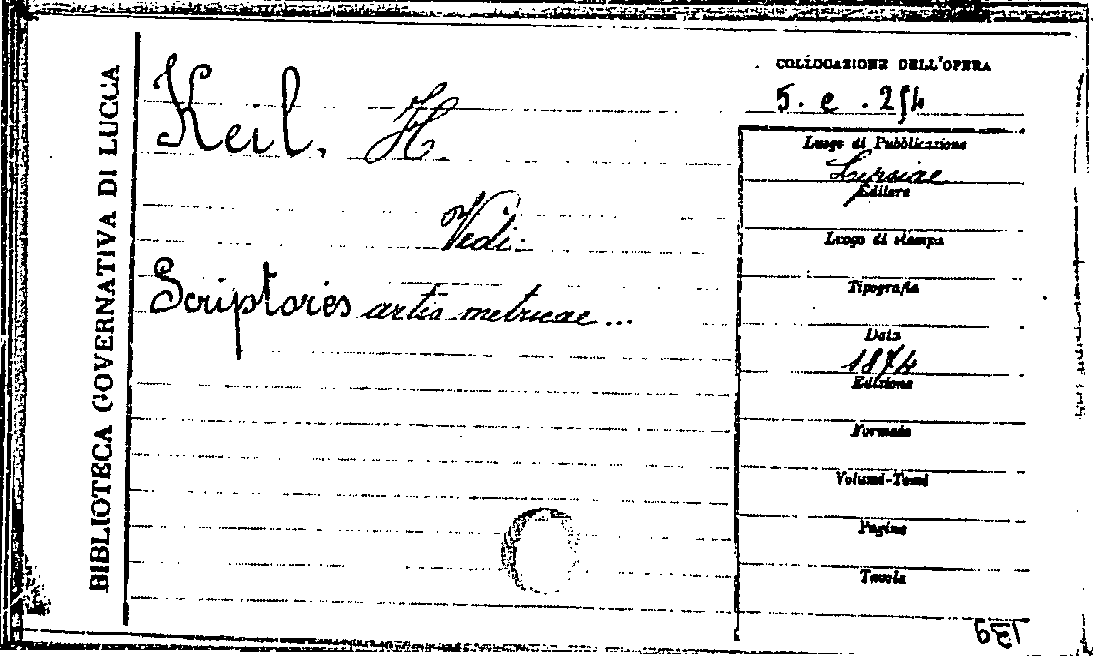 BIBLIOTECA GOVERNATIVA DI LUCCA
Keil. H.
Vedi:
Scriptores artis metricae...
COLLOCAZIONE DELL'OPERA
5. e. 254
Luogo di Pubblicazione
Lipsiae
Editore
Luogo di stampa
Tipografia
Data
1874
Edizione
Formato
Volumi-Tomi
Pagine
Tavole